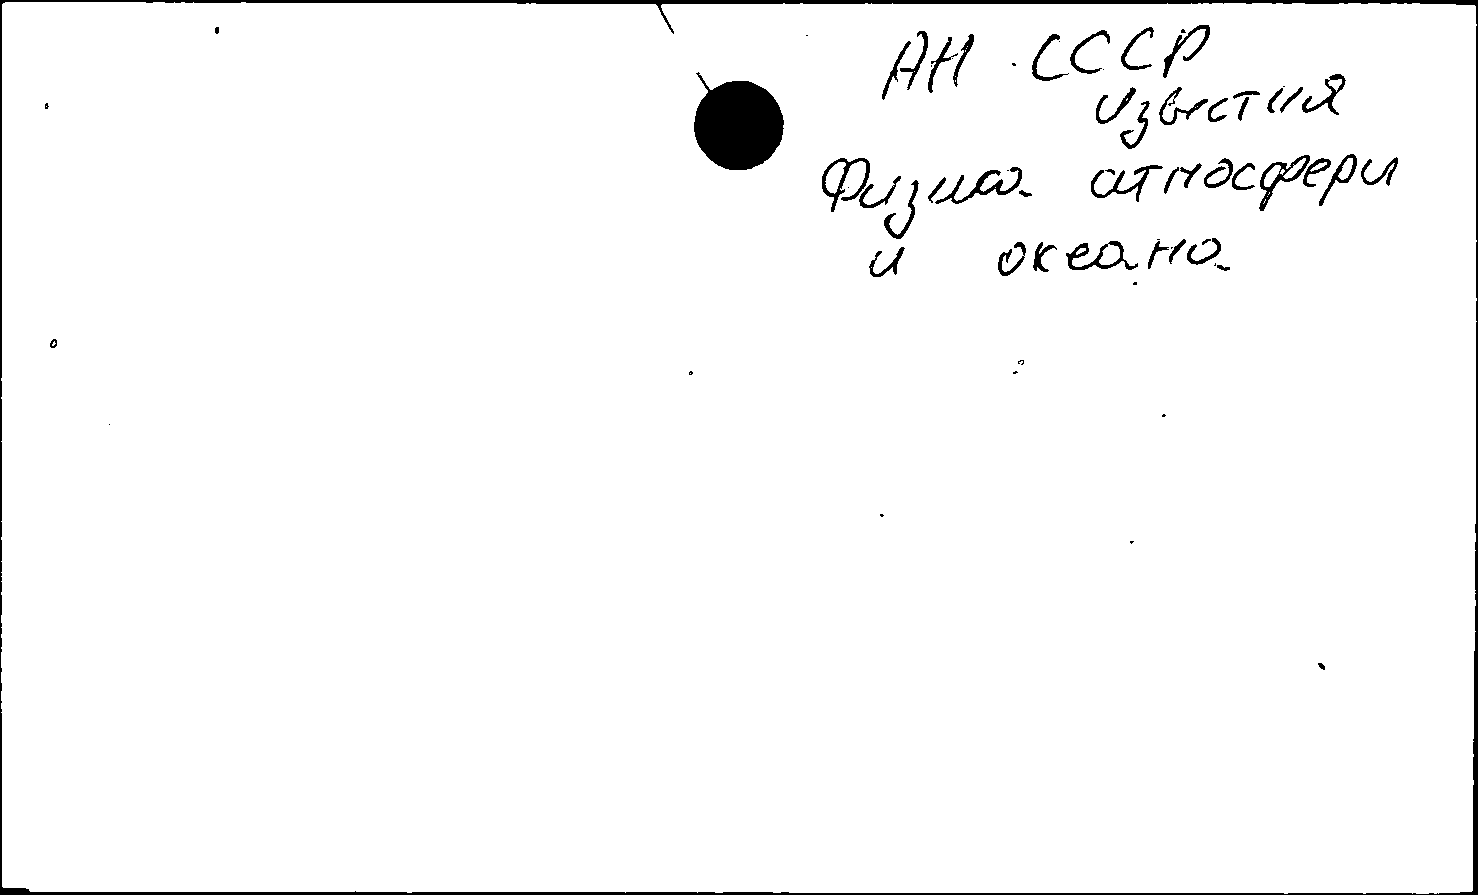 АН СССР
Известия
Физика атмосфери
и океана